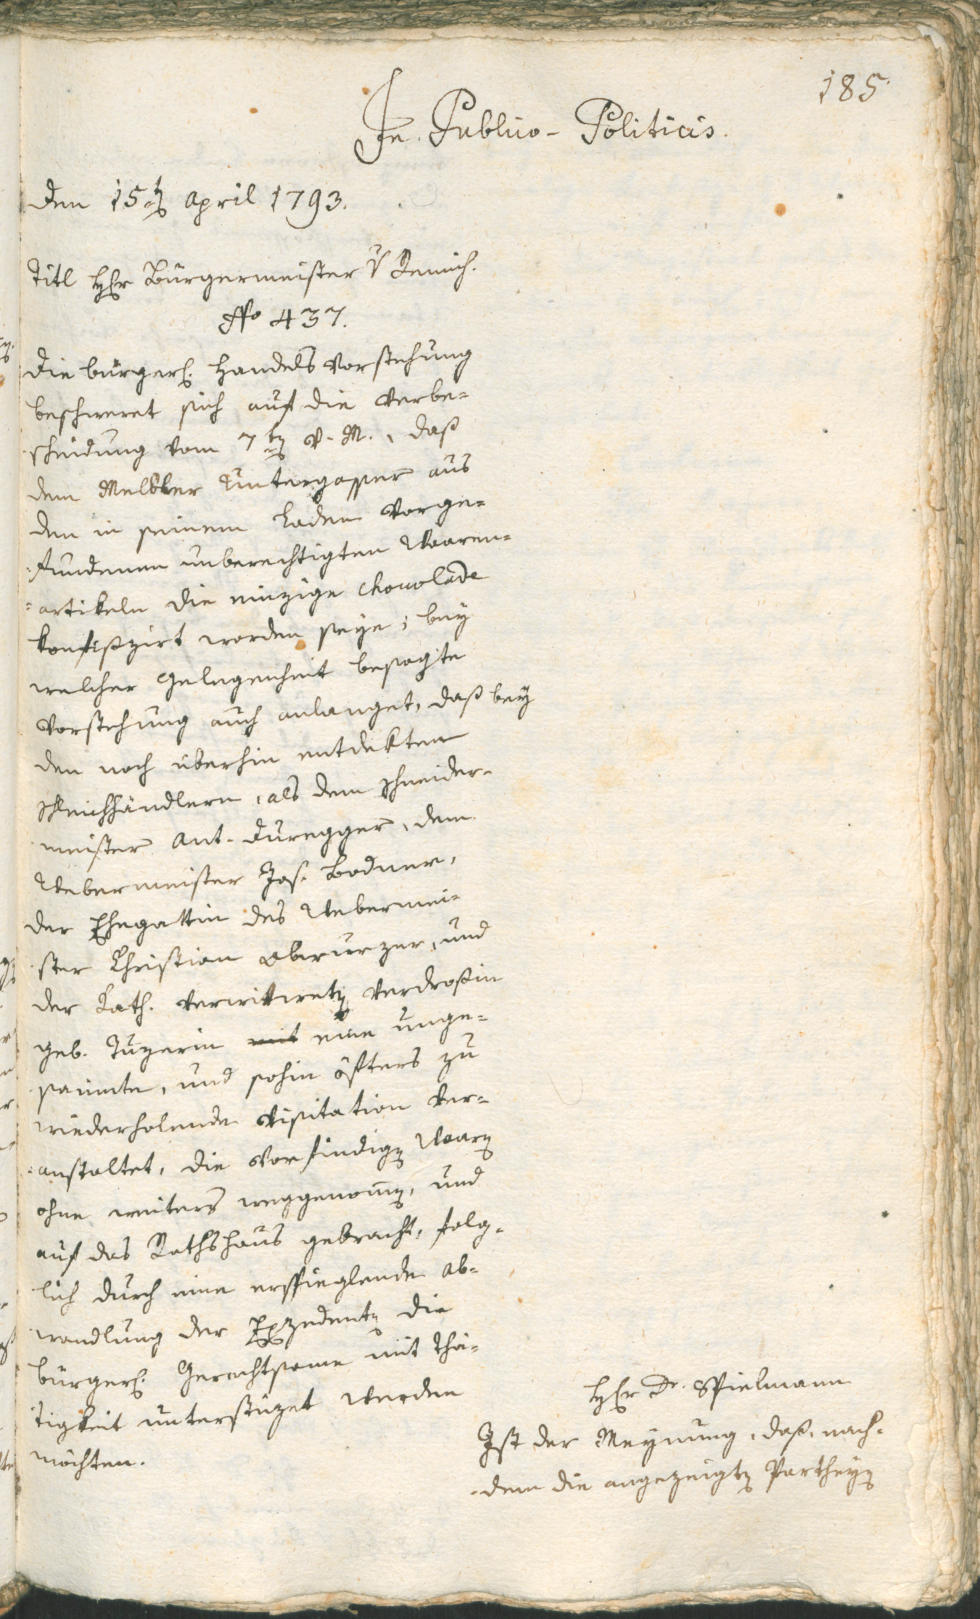 185.
In Publico-Politicis.
den 15ten April 1793.
Titl Herr Bürgermeister v Remich.
No 437.
die bürgerl. Handels Vorstehung
beschweret sich auf die Verbe-
scheidung vom 7ten v. M., daß
dem Melbler Untergasser aus
den in seinem Laden vorge-
fundenen unberechtigten Waaren-
artikeln die einzige Chocolade
konfißzirt worden seye; bey
welcher Gelegenheit besagte
Vorstehung auch anlanget, daß bey
den noch überhin entdekten
Schleichhändlern, als dem Schneider-
meister Ant. Duregger, dem
Webermeister Jos. Bodner,
der Ehegattin des Webermei-
ster Christian Obwurzer, und
der Kath. verwittweten Verdroßin
geb. Tuzerin mit eine unge-
säumte, und sohin öfters zu
wiederholende Visitation ver-
anstaltet, die vorfindigen Waaren
ohne weiters weggenommen, und
auf das Rathshaus gebracht, folg-
lich durch eine erspieglende Ab-
wandlung der Exzedenten die
bürgerl. Gerechtsame mit Thä-
tigkeit unterstüzet werden
möchten.
Herr Dr. Spielmann
Ist der Meynung, daß, nach-
dem die angezeigten Partheyen